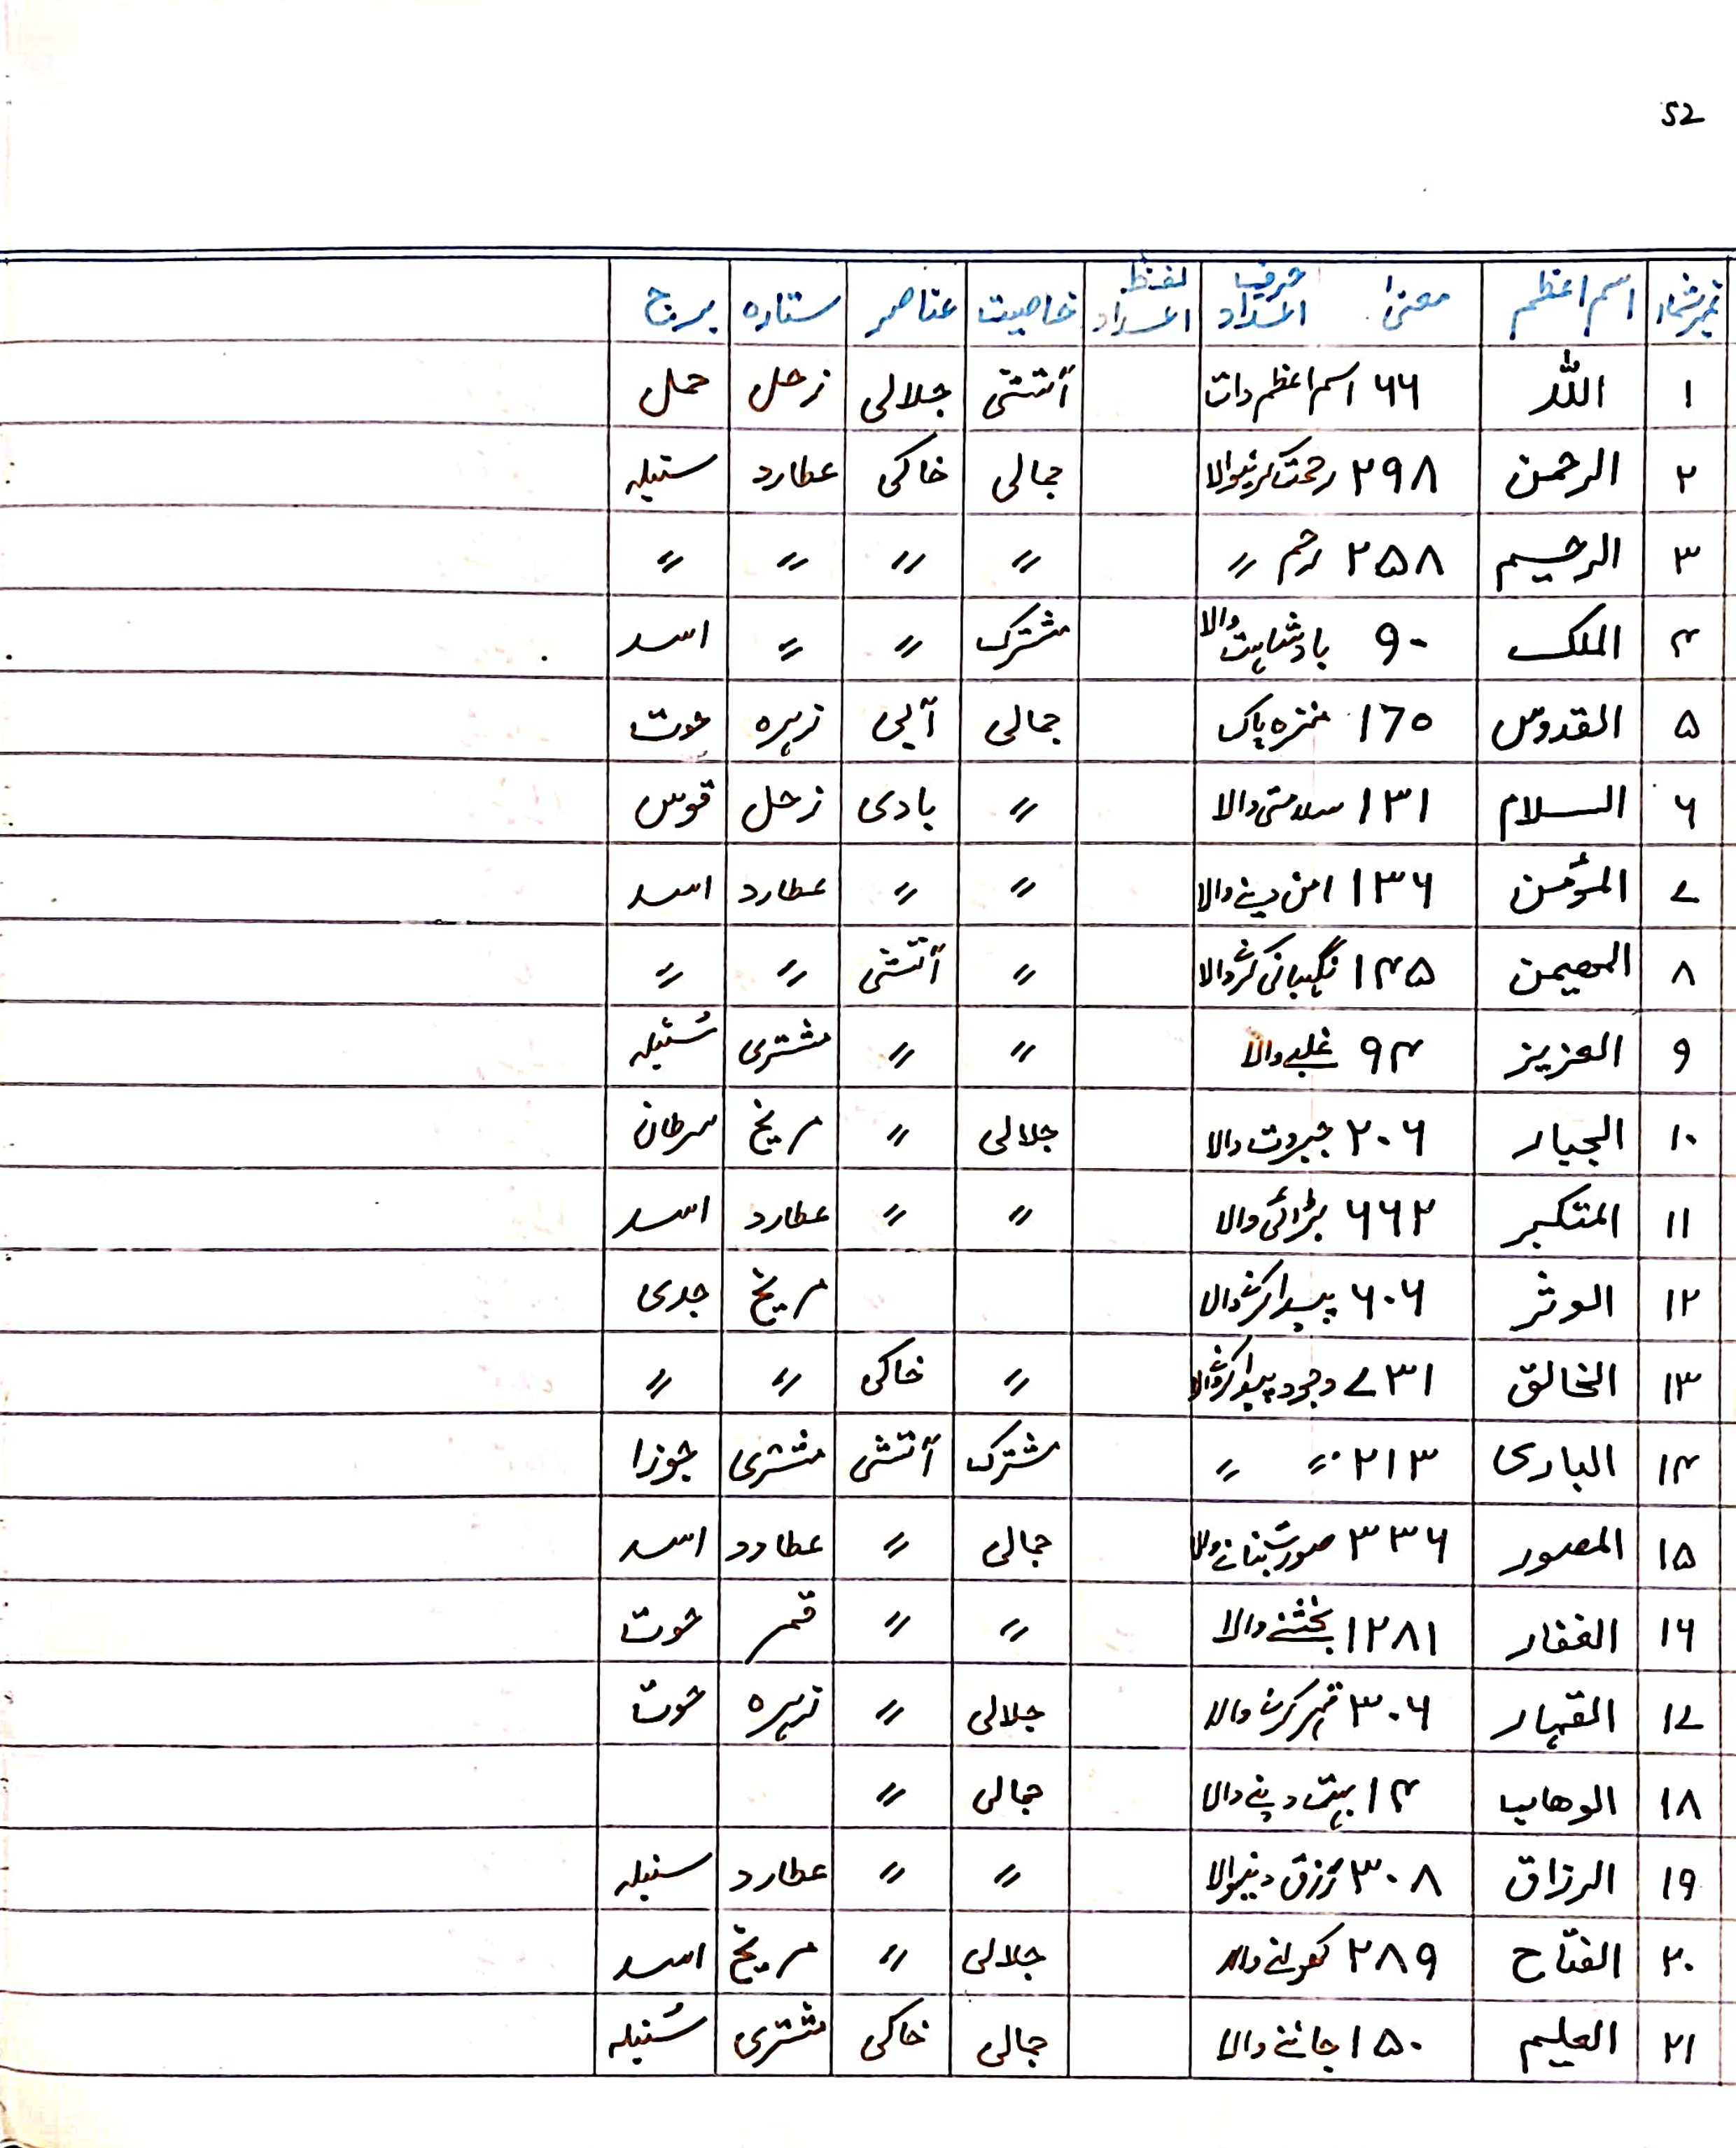 52
نمبر شمار اسم اعظم معنیٰ حرفی اعداد لفظ اعداد خاصیت عناصر ستارہ برج
۱ اللہ ۶۶ اسم اعظم ذات آتشی جلالی زحل حمل
۲ الرحمن ۲۹۸ رحمت کرنیوالا جمالی خاکی عطارد سنبلہ
۳ الرحیم ۲۵۸ رحم 〃 〃 〃 〃 〃
۴ الملک ۹۰ بادشاہت والا مشترک 〃 〃 اسد
۵ القدوس ۱70 منزہ پاک جمالی آبی زہرہ حوت
۶ السلام ۱۳۱ سلامتی والا 〃 بادی زحل قوس
۷ المؤمن ۱۳۶ امن دینے والا 〃 〃 عطارد اسد
۸ المھیمن ۱۴۵ نگہبانی کرنے والا 〃 آتشی 〃 〃
۹ العزیز ۹۴ غلبے والا 〃 〃 مشتری سُنبلہ
۱۰ الجبار ۲۰۶ جبروت والا جلالی 〃 مریخ سرطان
۱۱ المتکبر ۶۶۲ بڑائی والا 〃 〃 عطارد اسد
۱۲ الوثر ۶۰۶ پیدا کرنے والا مریخ جدی
۱۳ الخالق ۷۳۱ وجود پیدا کرنے والا 〃 خاکی 〃 〃
۱۴ الباری ۲۱۳ 〃 〃 مشترک آتشی مشتری جوزا
۱۵ المصور ۳۳۶ صورت بنانے والا جمالی 〃 عطارد اسد
۱۶ الغفار ۱۲۸۱ بخشنے والا 〃 〃 قمر حوت
۱۷ القہار ۳۰۶ قہر کرنے والا جلالی 〃 زہرہ حوت
۱۸ الوھاب ۱۴ بہت دینے والا جمالی 〃
۱۹ الرزاق ۳۰۸ رزق دینیوالا 〃 〃 عطارد سنبلہ
۲۰ الفتّاح ۲۸۹ کھولنے والا جلالی 〃 مریخ اسد
۲۱ العلیم ۱۵۰ جاننے والا جمالی خاکی مشتری سُنبلہ